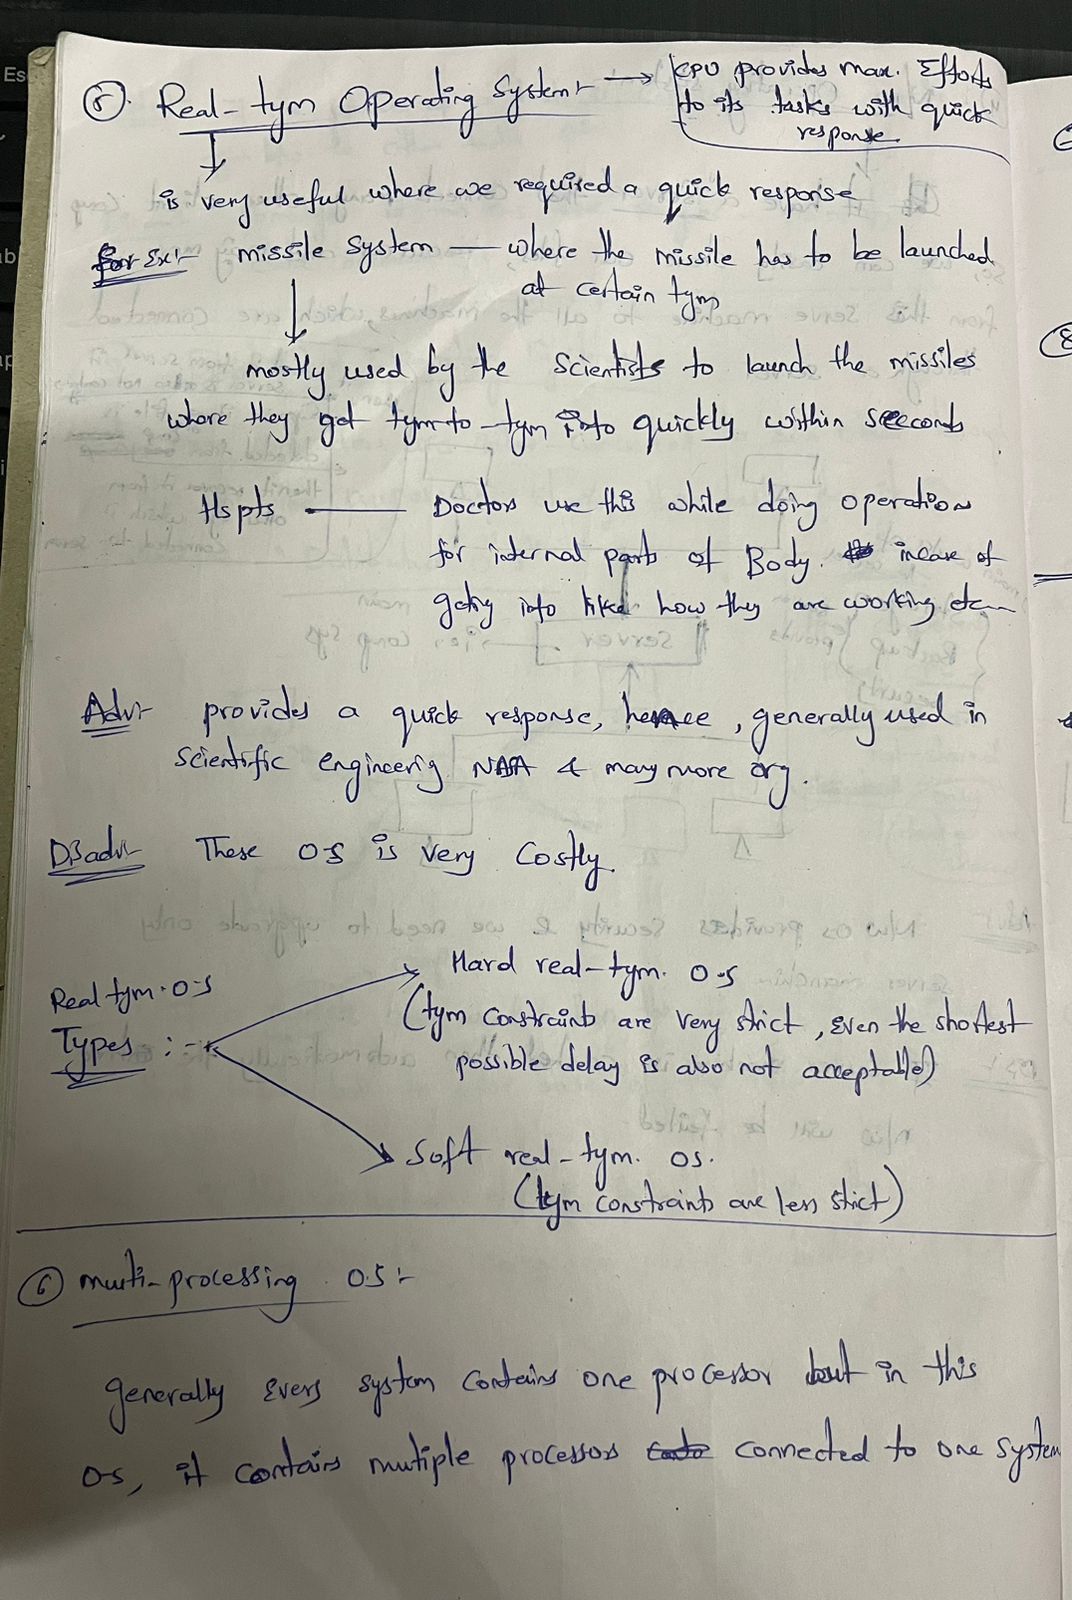 ⑤. Real-tym Operating System:- → CPU provides max. Efforts
to its tasks with quick
response
is very useful where we required a quick response
for Ex:- missile System — where the missile has to be launched
at certain tym
mostly used by the Scientists to launch the missiles
where they get tym-to-tym info quickly within seconds
Hspts — Doctors use this while doing operation
for internal parts of Body. incase of
geting info like how they are working etc
Adv:- provides a quick response, hence, generally used in
Scientific engineerig NASA & many more org.
DisAdv:- These O-S is very Costly.
Real tym. O-S
Types :- Hard real-tym. O-S
(tym Constraints are very strict, Even the shortest
possible delay is also not acceptable)
Soft real-tym. OS.
(tym constraints are less strict)
⑥ multi-processing O.S:-
generally Every system contains one processor but in this
O-S, it contains mutiple processors connected to one system